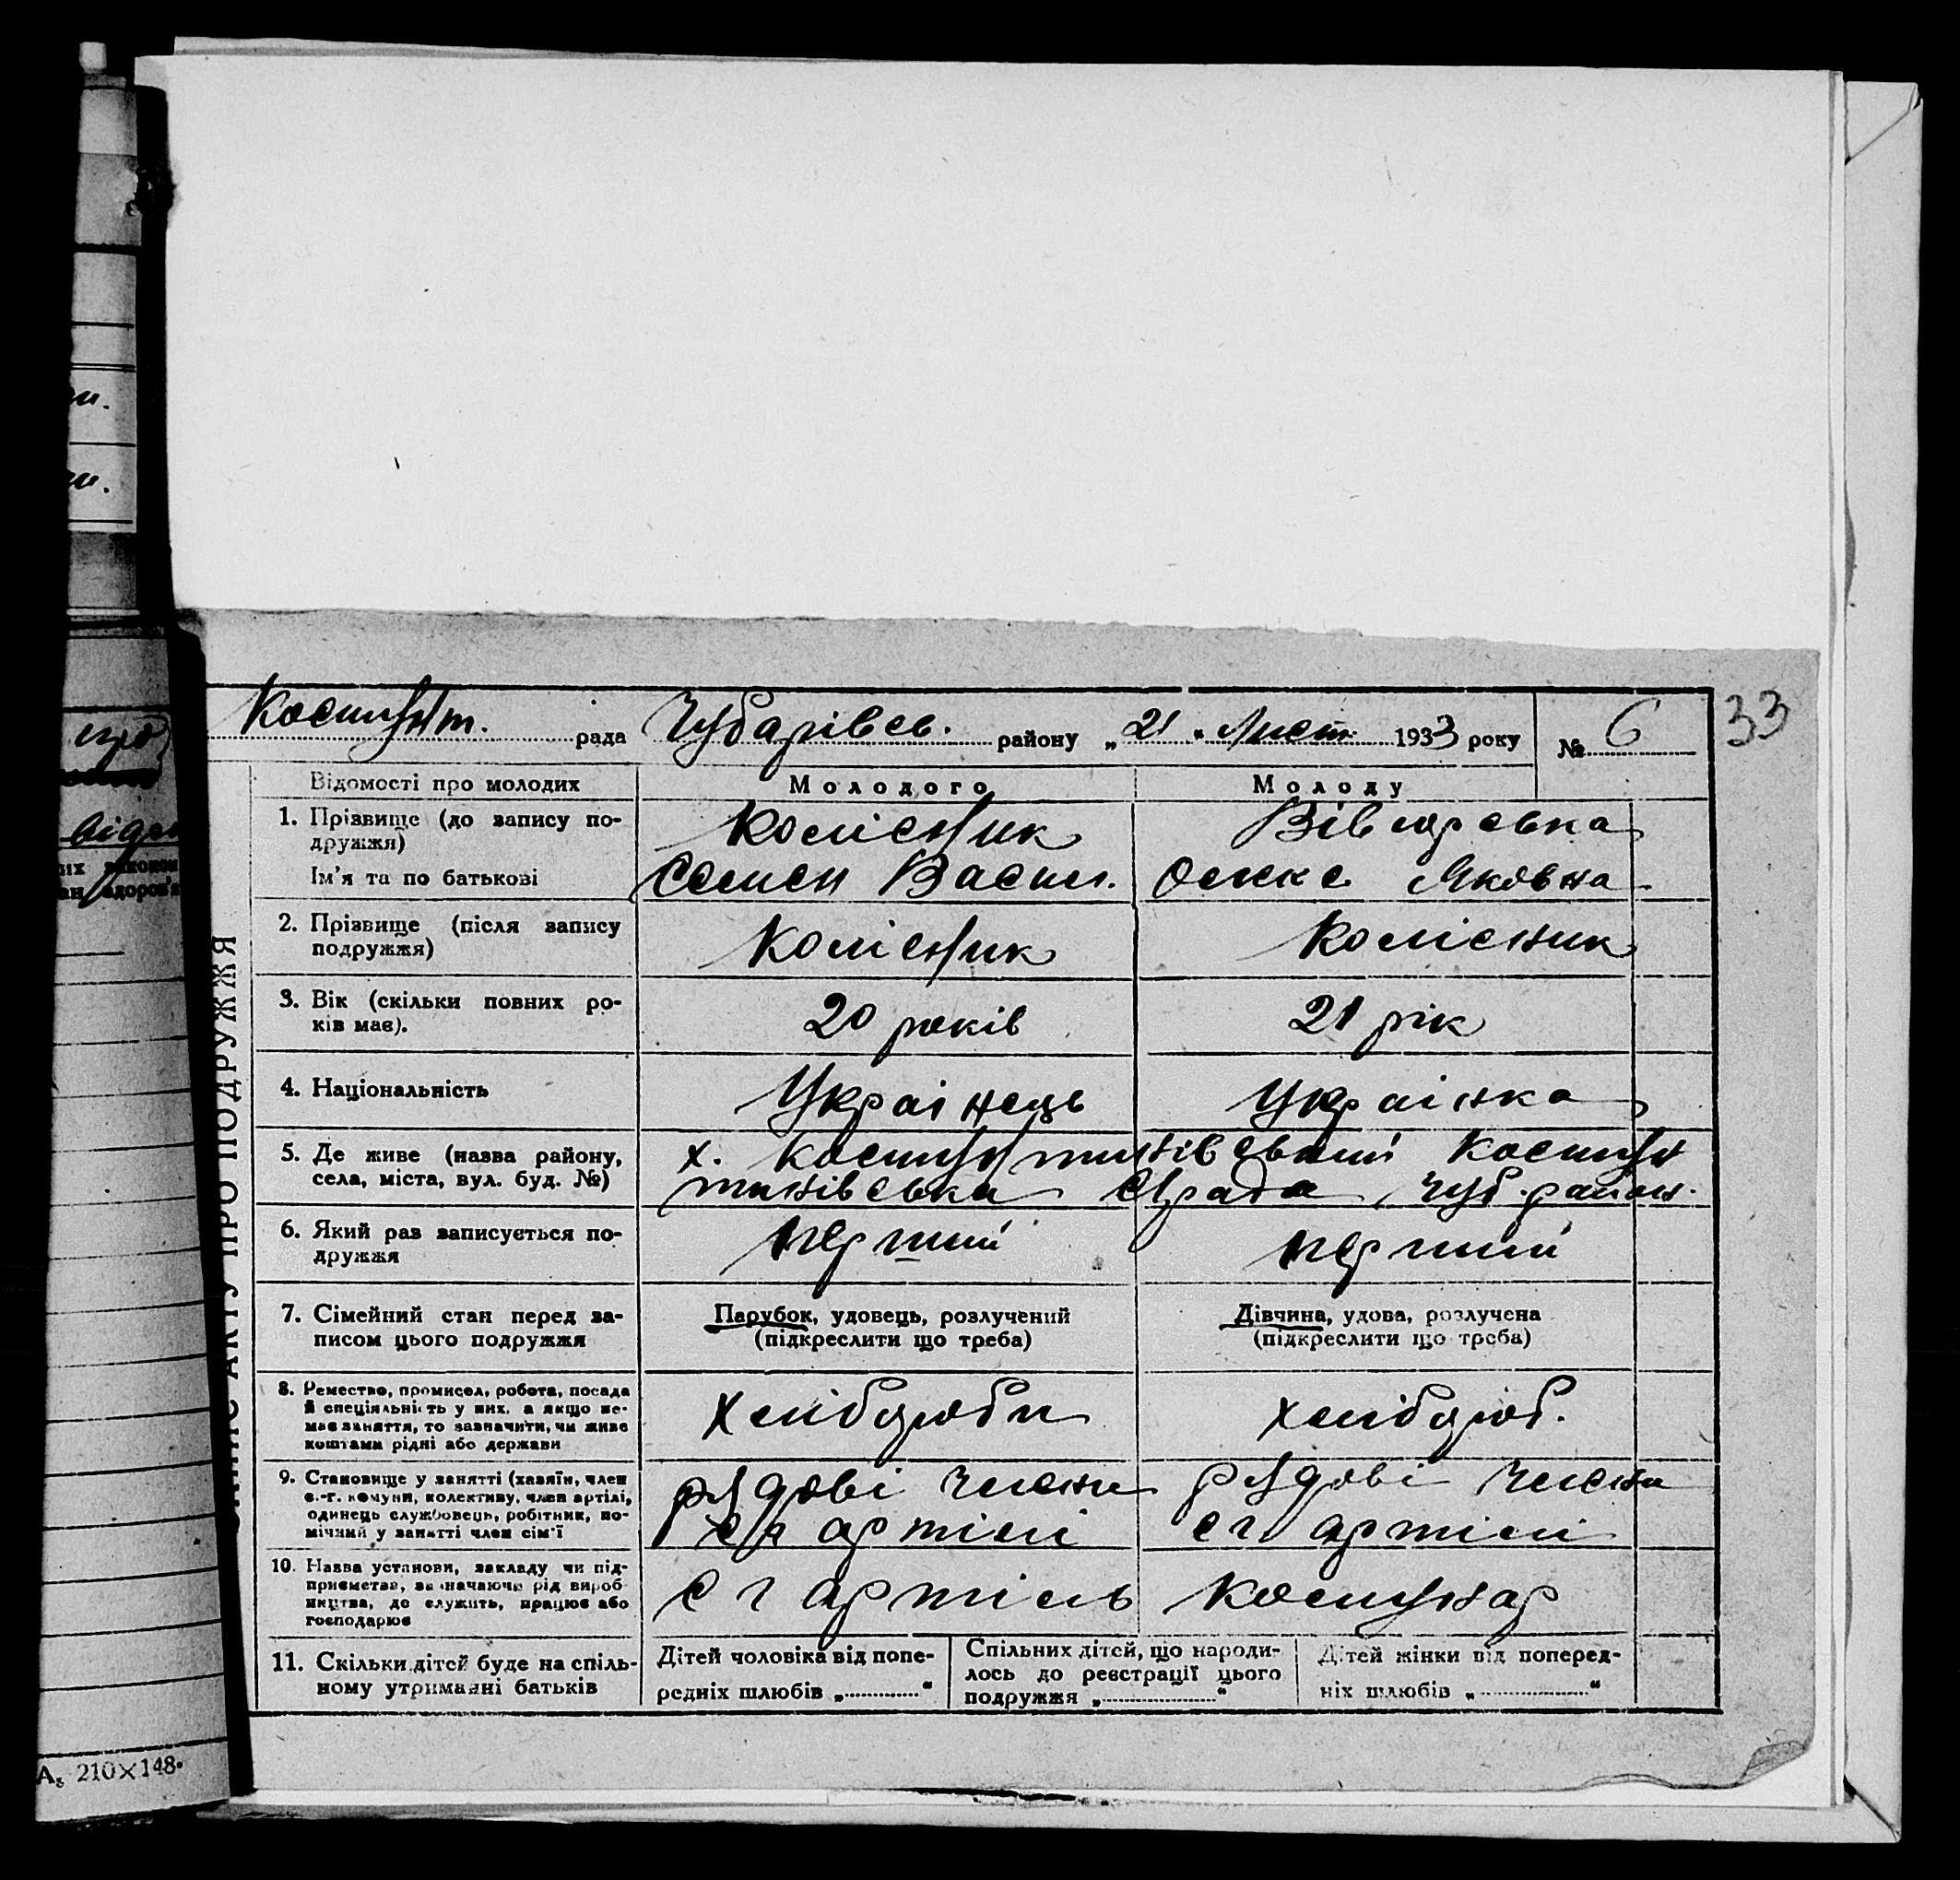 33
Костянт. рада Чубарівсь. району „21“ Лист. 1933 року № 6
Відомості про молодих Молодого Молоду
1. Прізвище (до запису по-
дружжя) Колісник
Ім'я та по батькові Семен Васил. Яковна
2. Прізвище (після запису
подружжя) Колісник Колісник
3. Вік (скільки повних ро-
ків має). 20 років 21 рік
4. Національність Украінець Украінка
5. Де живе (назва району,
села, міста, вул. буд. №) х. Костянтинівський Костян
тинівська с/рада, Чуб. район.
6. Який раз записується по-
дружжя перший перший
7. Сімейний стан перед за-
писом цього подружжя
Парубок, удовець, розлучений
(підкреслити що треба)
Дівчина, удова, розлучена
(підкреслити що треба)
8. Ремество, промисел, робота, посада
й спеціяльність у них, а якщо не-
має заняття, то зазначити, чи живе
коштами рідні або держави
Хлібороби хлібороб.
9. Становище у занятті (хазяїн, член
с.-г. комуни, колективу, член артілі,
одинець службовець, робітник, по-
мічний у занятті член сім'ї
рядові члени рядові члени
сг артілі сг артілі
10. Назва установи, закладу чи під-
приємства, зазначаючи рід вироб-
ництва, де служить, працює або
господарює
с г артіль Комунар
11. Скільки дітей буде на спіль-
ному утриманні батьків
Дітей чоловіка від попе-
редніх шлюбів „ “
Спільних дітей, що народи-
лось до реєстрації цього
подружжя „ “
Дітей жінки від поперед-
ніх шлюбів „ “
ПРО ПОДРУЖЖЯ
А₅ 210×148.